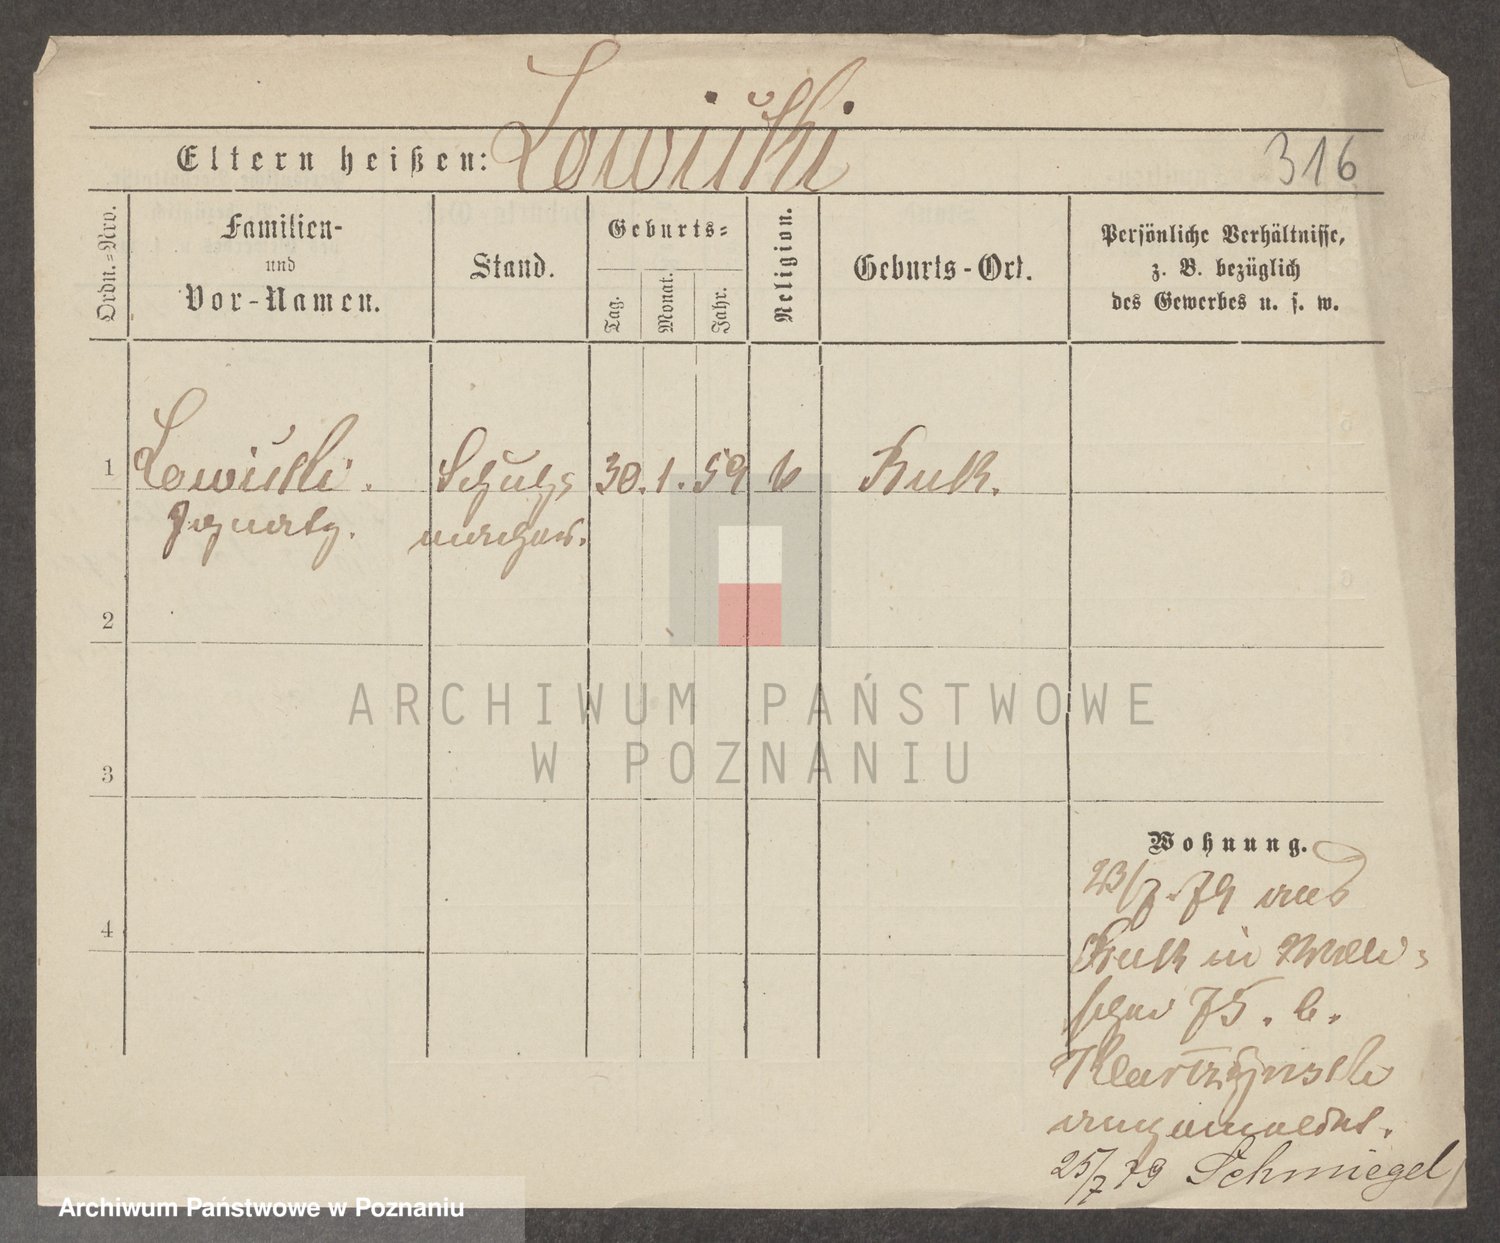 Eltern heißen:
316
Ordn.=Nro.
Familien-
und
Vor-Namen.
Stand.
Geburts=
Tag.
Monat.
Jahr.
Religion.
Geburts-Ort.
Persönliche Verhältnisse,
z. B. bezüglich
des Gewerbes u. s. w.
1
Schuh=
30. 1. 59
Buk.
Ignatz.
macher.
2
ARCHIWUM PAŃSTWOWE
W POZNANIU
3
Wohnung.
23/7. 79 aus
4
Buk in
75. b.
angemeldet.
25/7 79 Schmiegel
Archiwum Państwowe w Poznaniu